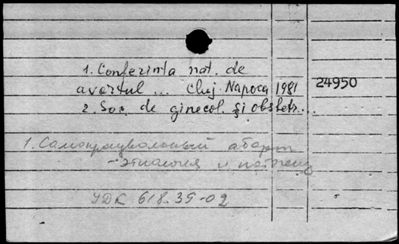 1. Conferinta naț. de
avortul ... Cluj. Napoca 1981 24950
2. Soc. de ginecol. și obstetr...
1. Самопроизвольный аборт
- этиология и патогенез
УДК 618.39-02